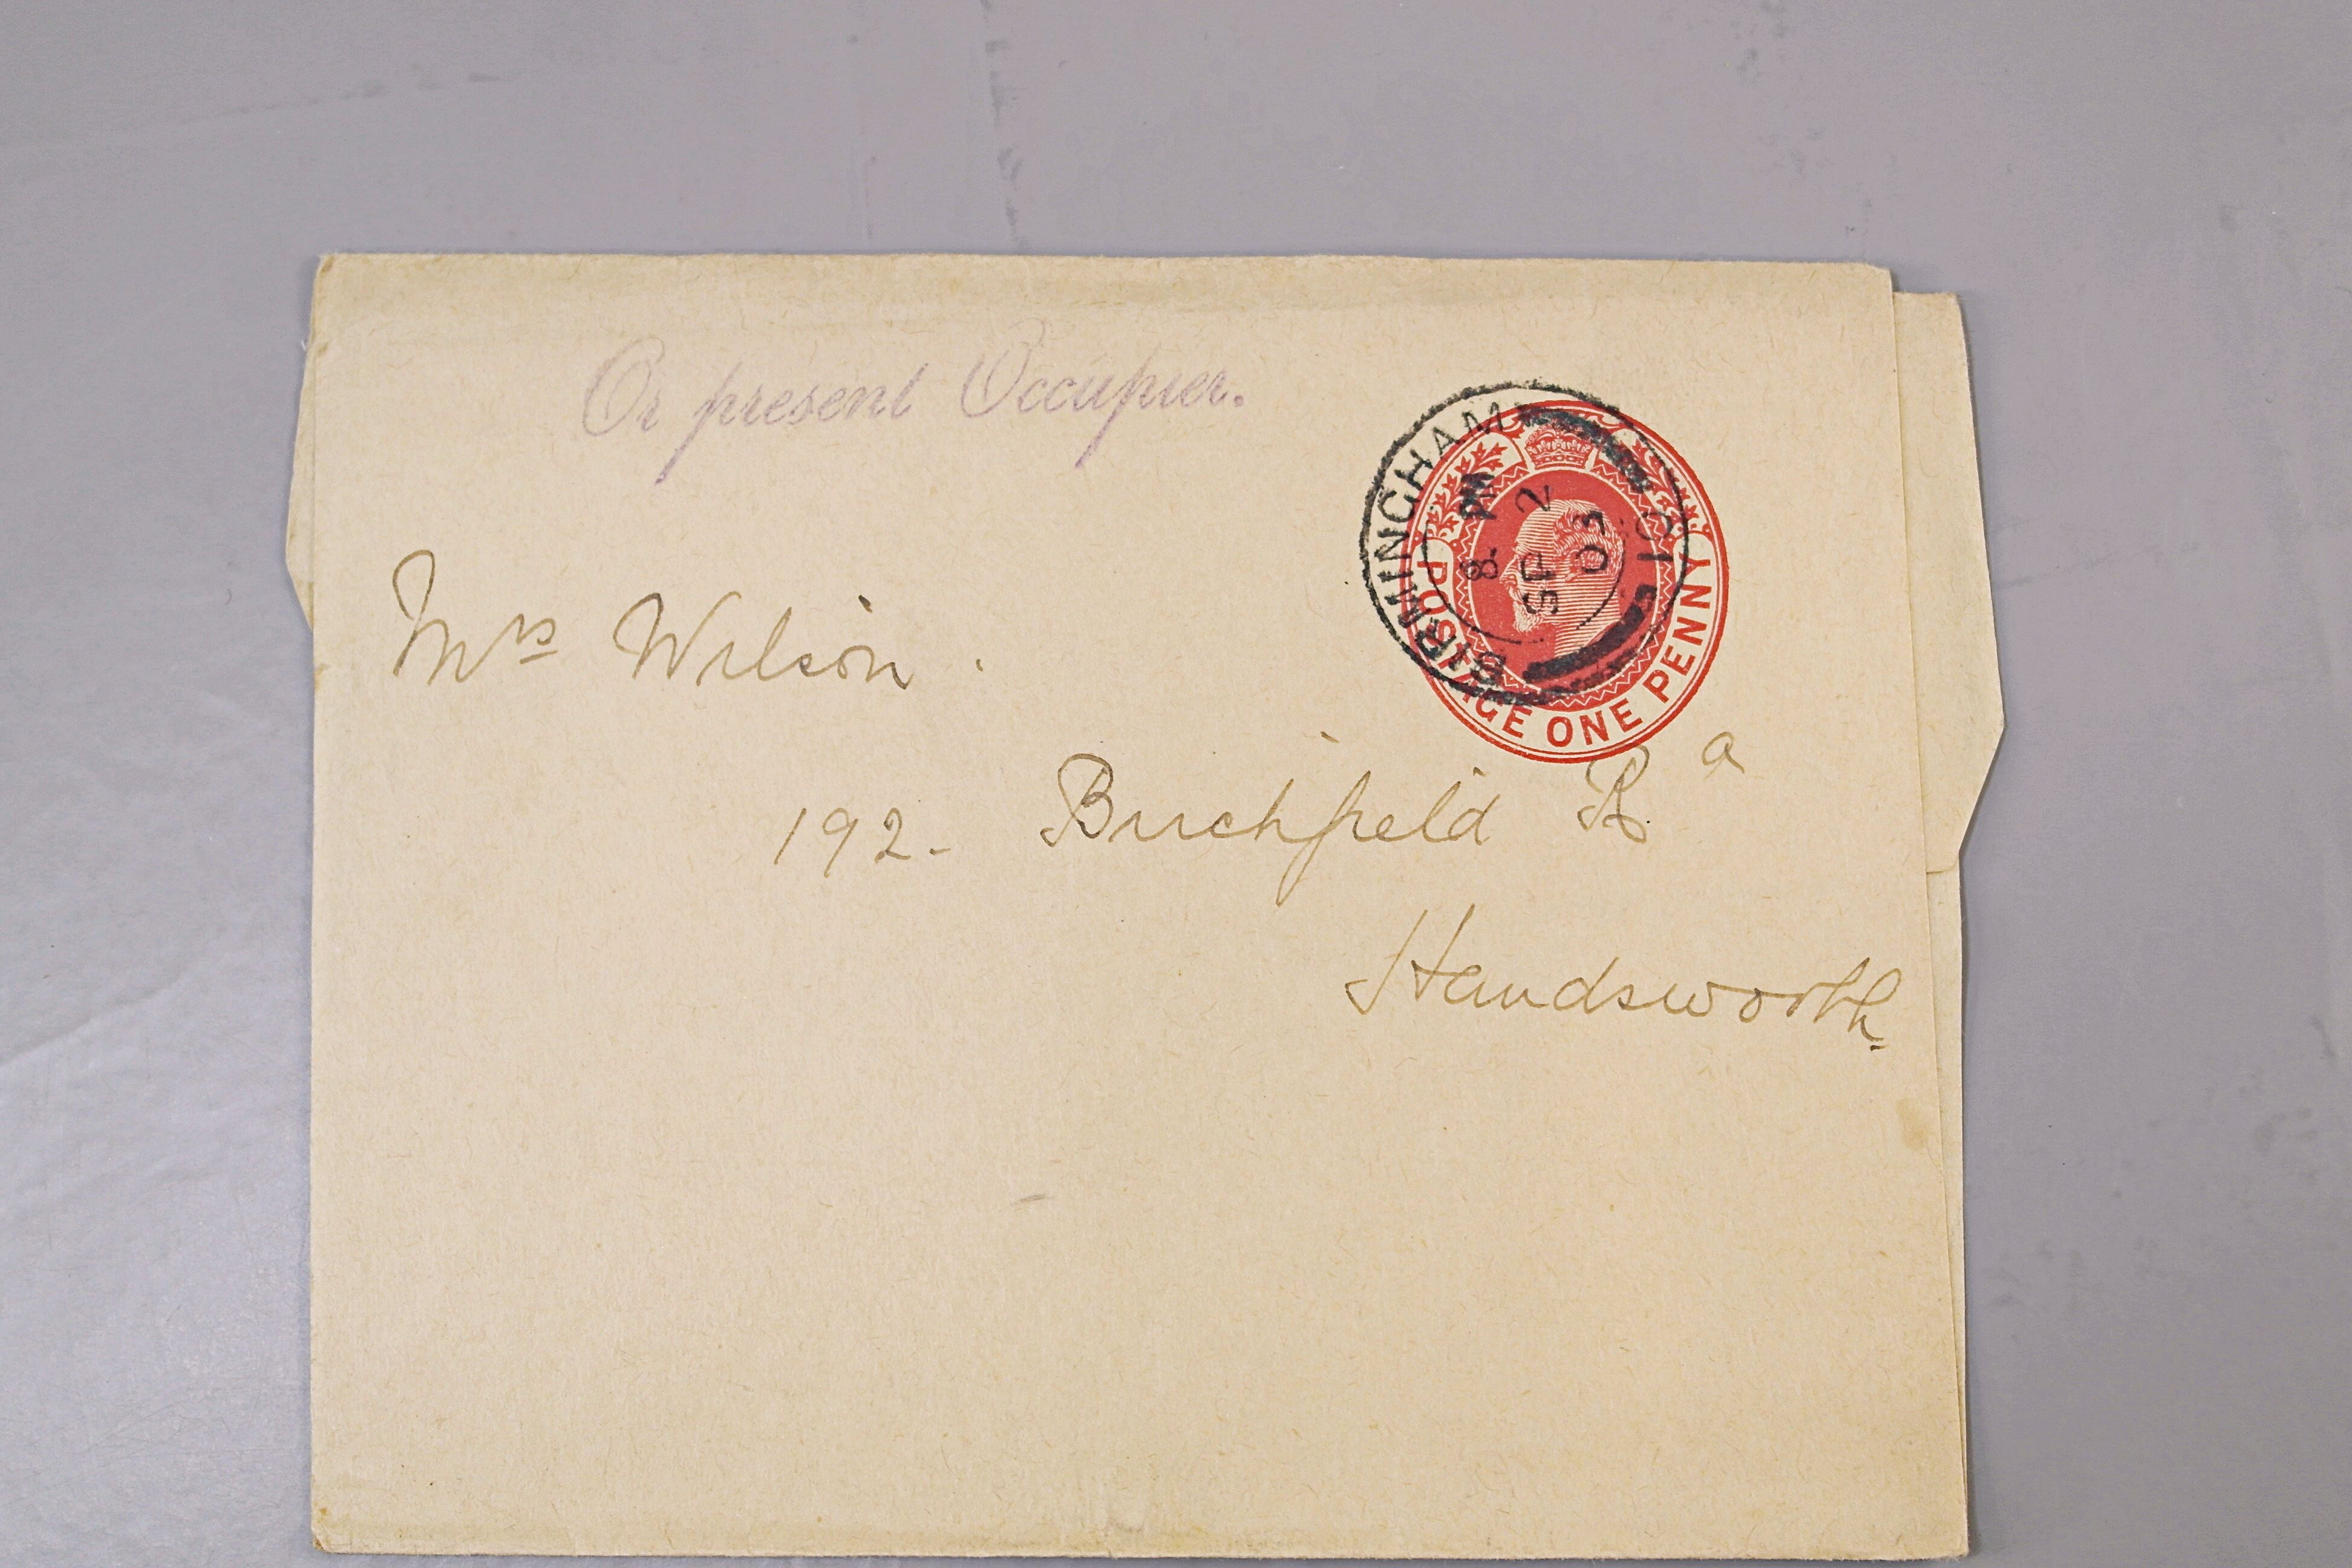 Or present Occupier.
BIRMINGHAM
8. PM
SP 2
03
POSTAGE ONE PENNY
Mrs Wilson.
192- Birchfield Rd
Handsworth